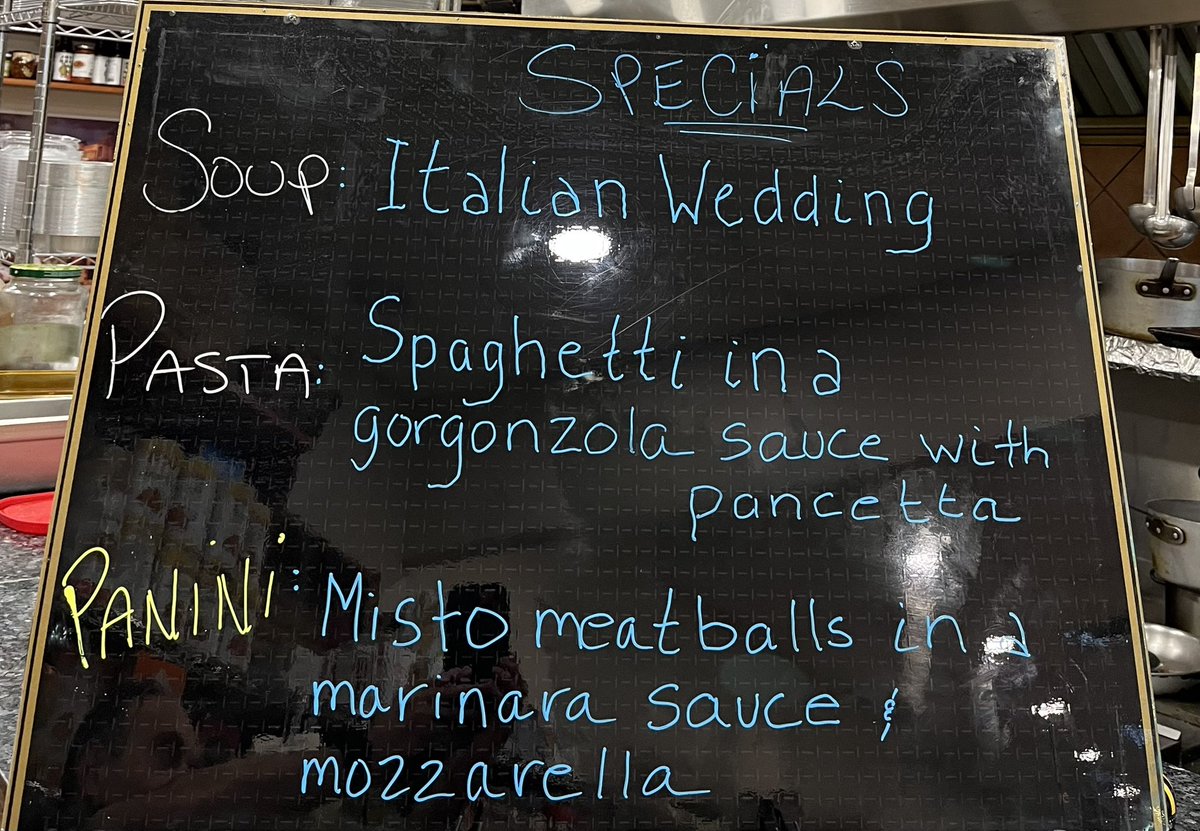 SPECiALS
Soup: Italian Wedding
PASTA: Spaghetti in a
gorgonzola sauce with
pancetta
PANiNi: Misto meatballs in a
marinara sauce &
mozzarella